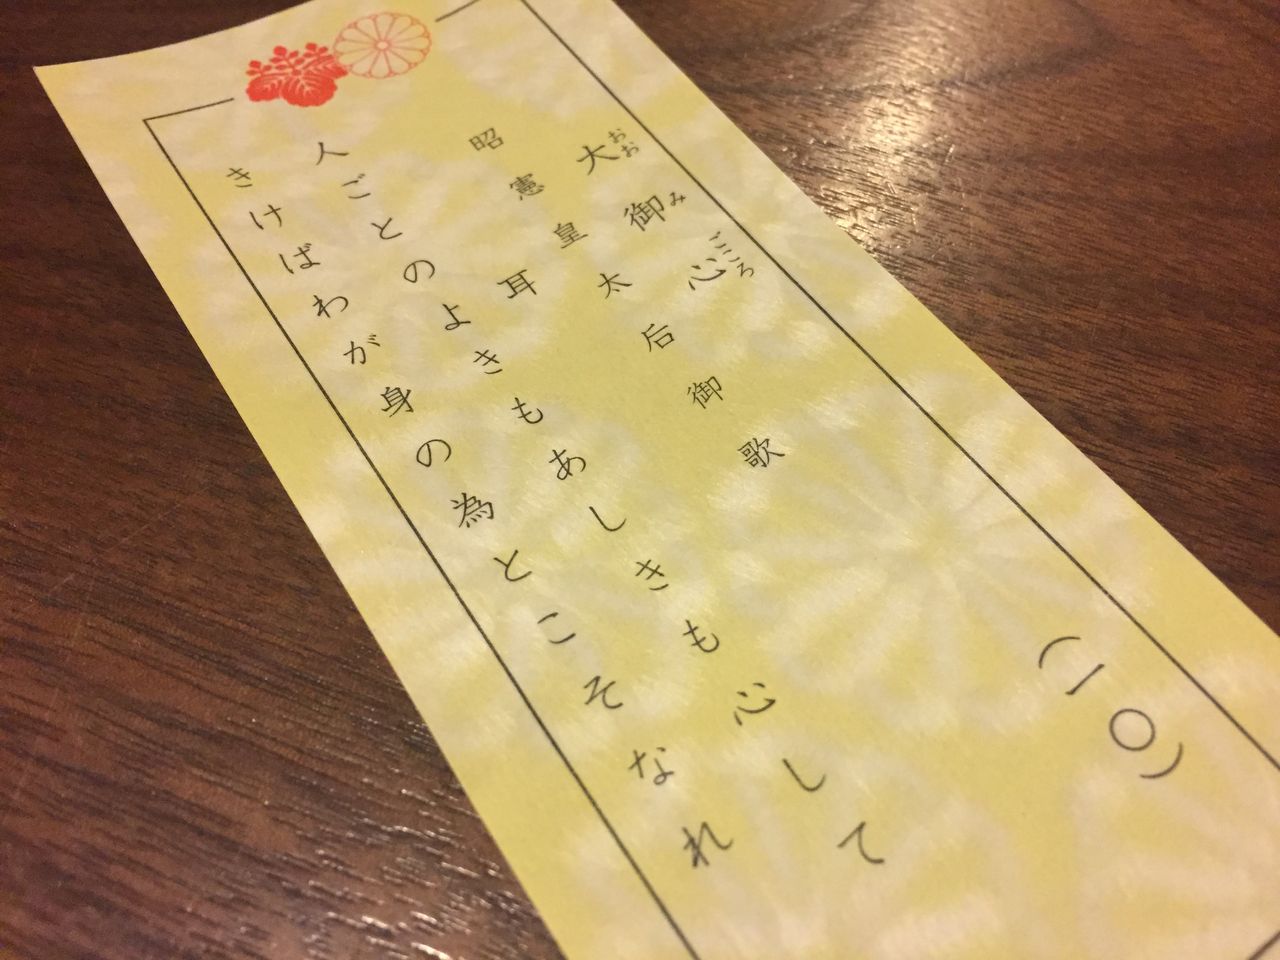 大御心 (一〇)
おおみごころ
昭憲皇太后御歌
耳
人ごとのよきもあしきも心して
きけばわが身の為とこそなれ